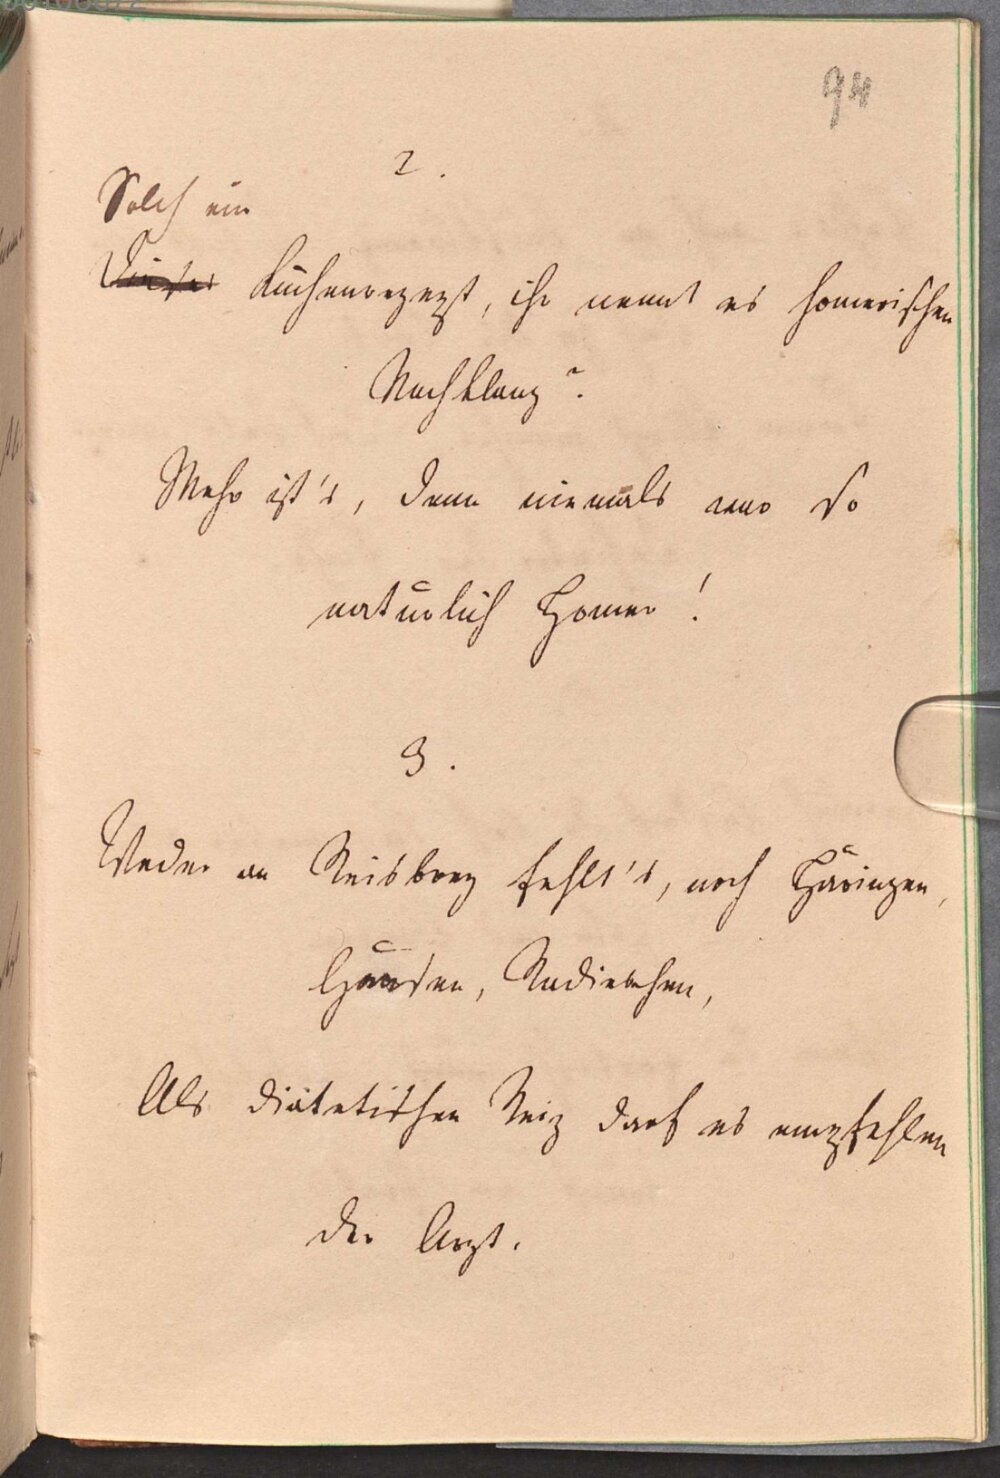 94
2.
Solch ein
Dieses Küchenrezept, ihr nennt es homerischen
Nachklang?
Mehr ist's, denn niemals war so
natürlich Homer!
3.
Weder an Reisbrey fehlt's, noch Häringen,
Gänsen, Radieschen,
Als diätetischen Reiz darf es empfehlen
der Arzt.